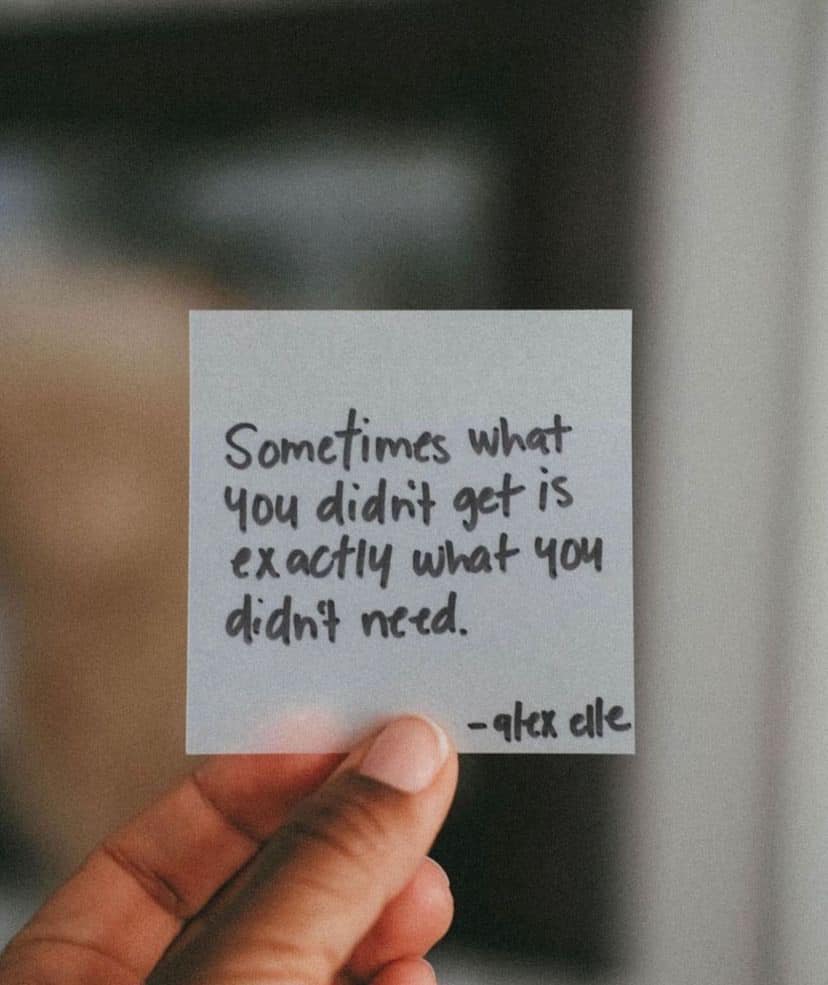 Sometimes what
you didn't get is
exactly what you
didn't need.
-alex elle